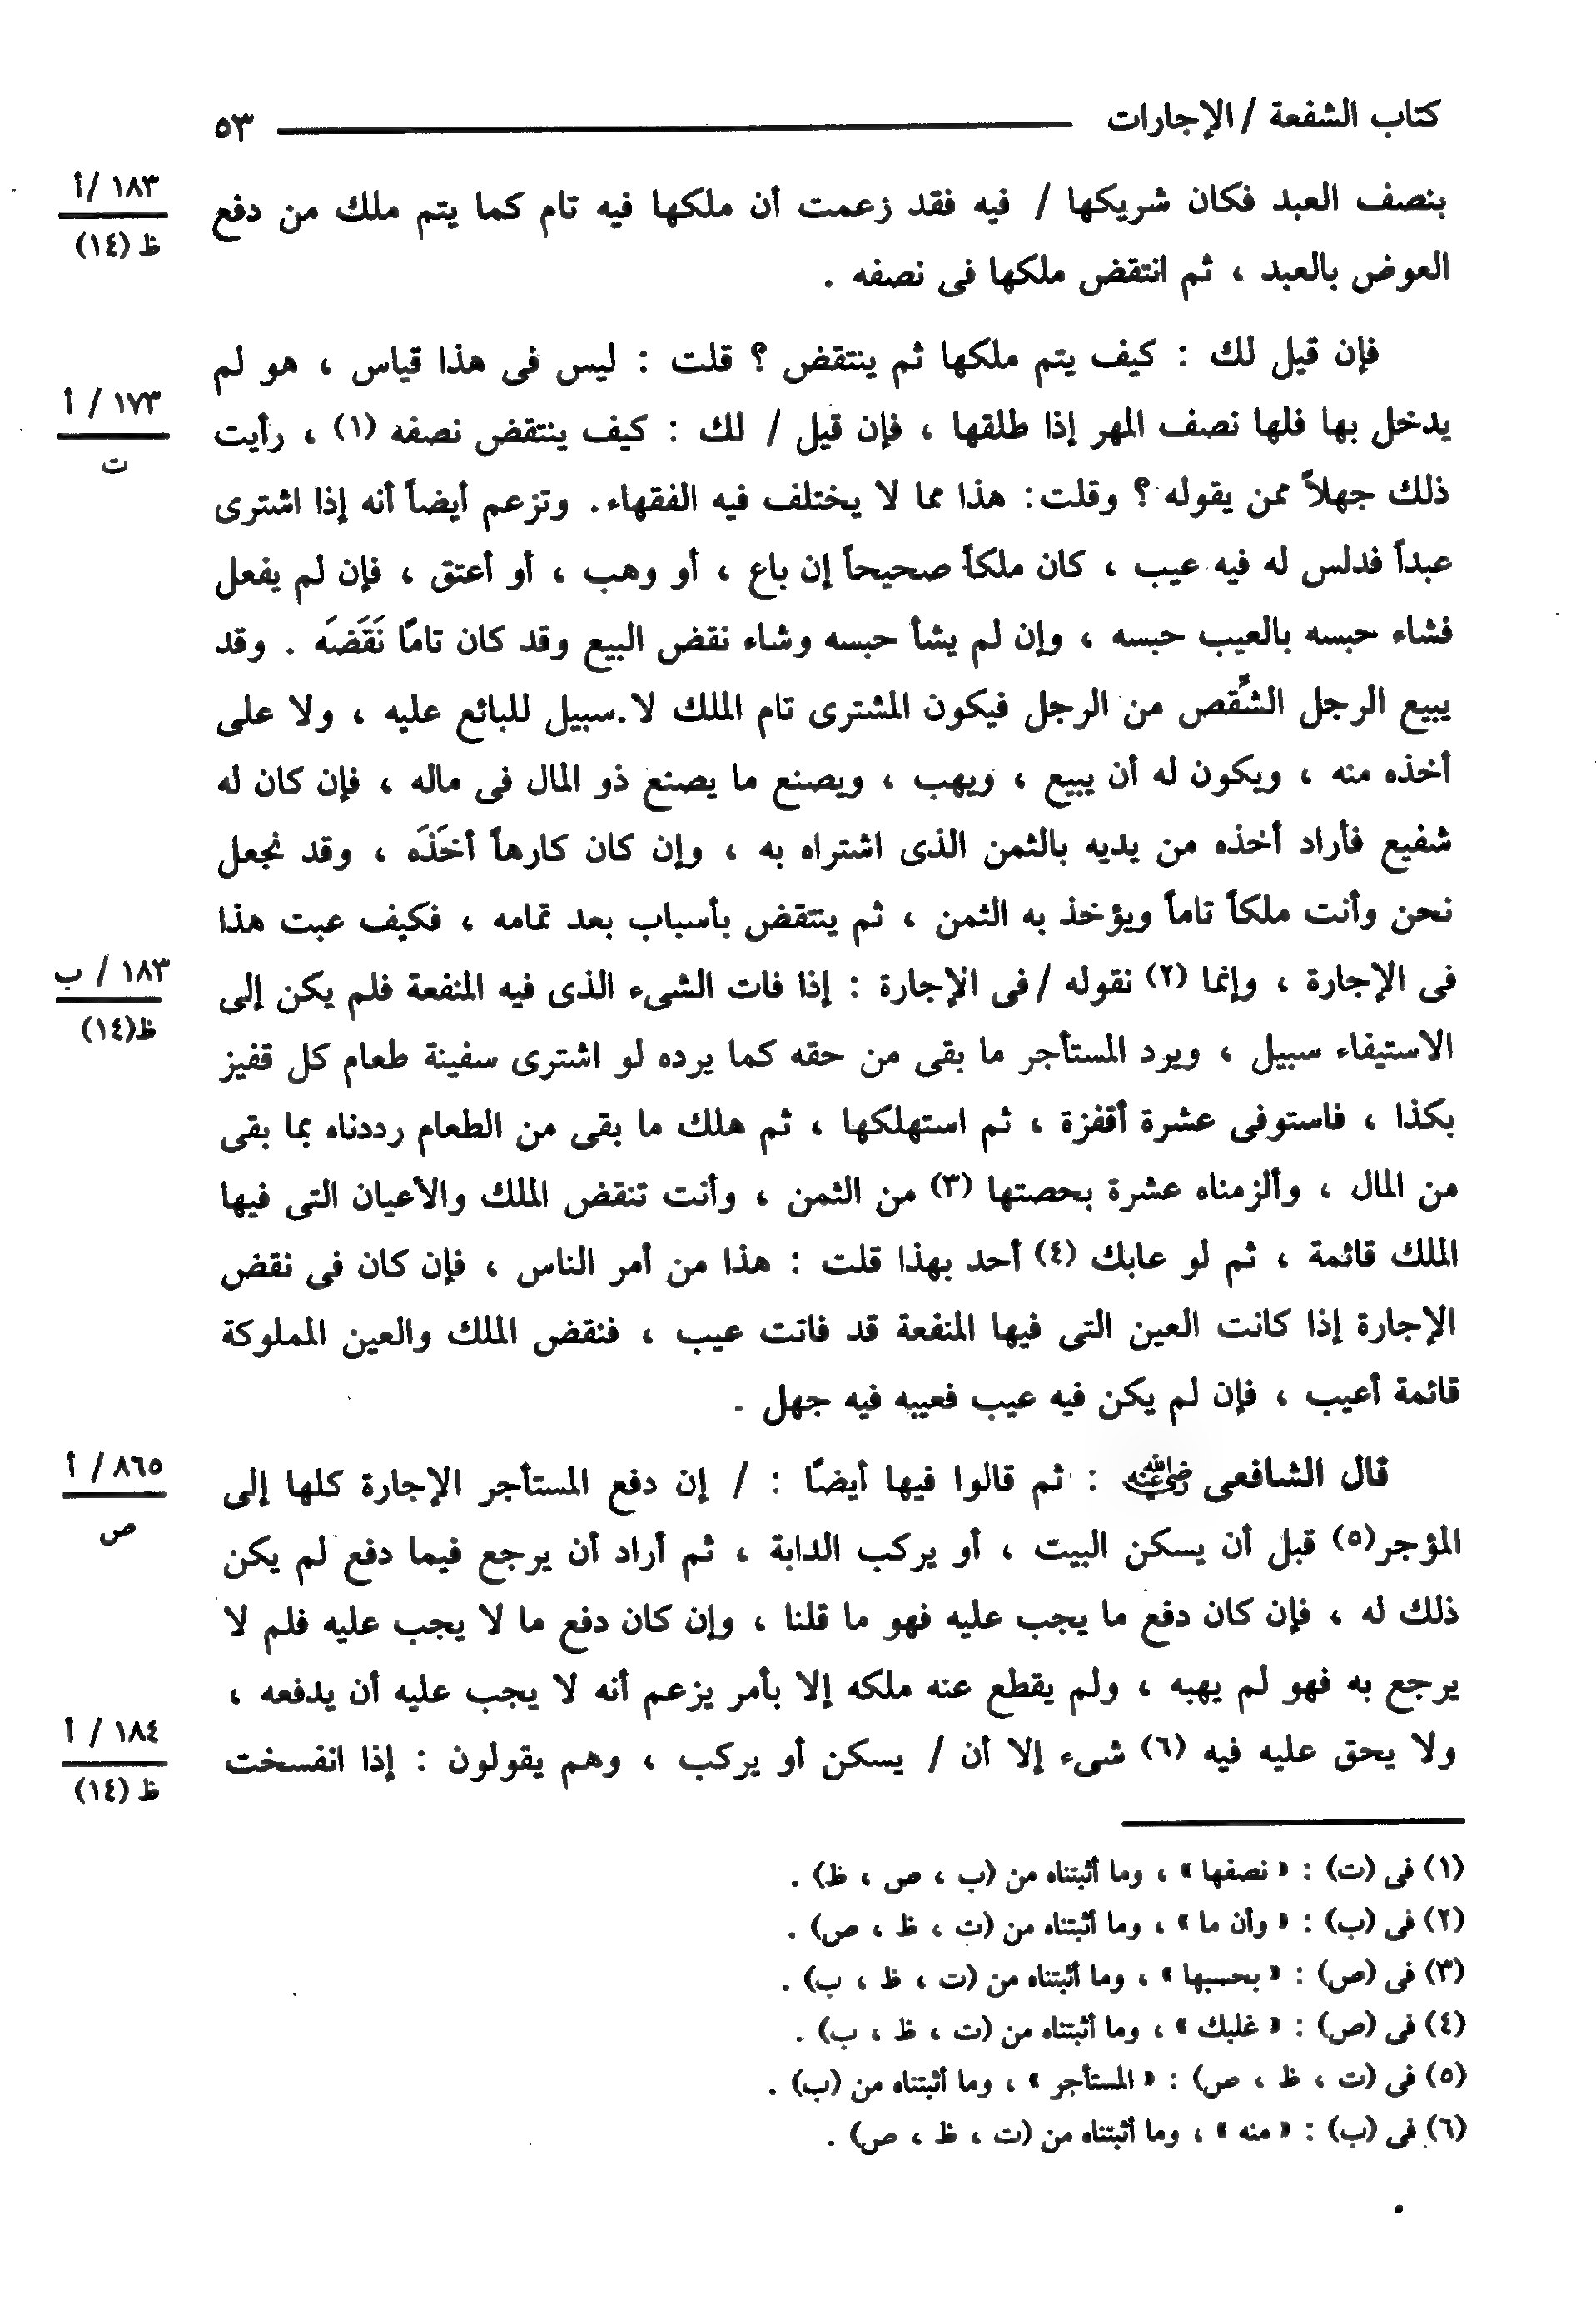 كتاب الشفعة / الإجارات ٥٣
بنصف العبد فكان شريكها / فيه فقد زعمت أن ملكها فيه تام كما يتم ملك من دفع
١٨٣ /أ
ظ (١٤)
العوض بالعبد ، ثم انتقض ملكها فى نصفه .
فإن قيل لك : كيف يتم ملكها ثم ينتقض ؟ قلت : ليس فى هذا قياس ، هو لم
يدخل بها فلها نصف المهر إذا طلقها ، فإن قيل / لك : كيف ينتقض نصفه (١) ، رأيت
١٧٣ / أ
ت
ذلك جهلاً ممن يقوله ؟ وقلت: هذا مما لا يختلف فيه الفقهاء. وتزعم أيضاً أنه إذا اشترى
عبداً فدلس له فيه عيب ، كان ملكاً صحيحاً إن باع ، أو وهب ، أو أعتق ، فإن لم يفعل
فشاء حبسه بالعيب حبسه ، وإن لم يشأ حبسه وشاء نقض البيع وقد كان تامًا نَقَضَه . وقد
يبيع الرجل الشِّقص من الرجل فيكون المشترى تام الملك لا سبيل للبائع عليه ، ولا على
أخذه منه ، ويكون له أن يبيع ، ويهب ، ويصنع ما يصنع ذو المال فى ماله ، فإن كان له
شفيع فأراد أخذه من يديه بالثمن الذى اشتراه به ، وإن كان كارهاً أخَذَه ، وقد نجعل
نحن وأنت ملكاً تاماً ويؤخذ به الثمن ، ثم ينتقض بأسباب بعد تمامه ، فكيف عبت هذا
فى الإجارة ، وإنما (٢) نقوله /فى الإجارة : إذا فات الشىء الذى فيه المنفعة فلم يكن إلى
١٨٣ / ب
ظ(١٤)
الاستيفاء سبيل ، ويرد المستأجر ما بقى من حقه كما يرده لو اشترى سفينة طعام كل قفيز
بكذا ، فاستوفى عشرة أقفزة ، ثم استهلكها ، ثم هلك ما بقى من الطعام رددناه بما بقى
من المال ، وألزمناه عشرة بحصتها (٣) من الثمن ، وأنت تنقض الملك والأعيان التى فيها
الملك قائمة ، ثم لو عابك (٤) أحد بهذا قلت : هذا من أمر الناس ، فإن كان فى نقض
الإجارة إذا كانت العين التى فيها المنفعة قد فاتت عيب ، فنقض الملك والعين المملوكة
قائمة أعيب ، فإن لم يكن فيه عيب فعيبه فيه جهل .
قال الشافعى رضي الله عنه : ثم قالوا فيها أيضًا : / إن دفع المستأجر الإجارة كلها إلى
٨٦٥ / أ
ص
المؤجر(٥) قبل أن يسكن البيت ، أو يركب الدابة ، ثم أراد أن يرجع فيما دفع لم يكن
ذلك له ، فإن كان دفع ما يجب عليه فهو ما قلنا ، وإن كان دفع ما لا يجب عليه فلم لا
يرجع به فهو لم يهبه ، ولم يقطع عنه ملكه إلا بأمر يزعم أنه لا يجب عليه أن يدفعه ،
ولا يحق عليه فيه (٦) شىء إلا أن / يسكن أو يركب ، وهم يقولون : إذا انفسخت
١٨٤ / أ
ظ (١٤)
(١) فى (ت) : « نصفها » ، وما أثبتناه من (ب ، ص ، ظ) .
(٢) فى (ب) : « وأن ما » ، وما أثبتناه من (ت ، ظ ، ص) .
(٣) فى (ص) : « بحسبها » ، وما أثبتناه من (ت ، ظ ، ب) .
(٤) فى (ص) : « غلبك » ، وما أثبتناه من (ت ، ظ ، ب) .
(٥) فى (ت ، ظ ، ص) : « المستأجر » ، وما أثبتناه من (ب) .
(٦) فى (ب) : « منه » ، وما أثبتناه من (ت ، ظ ، ص) .